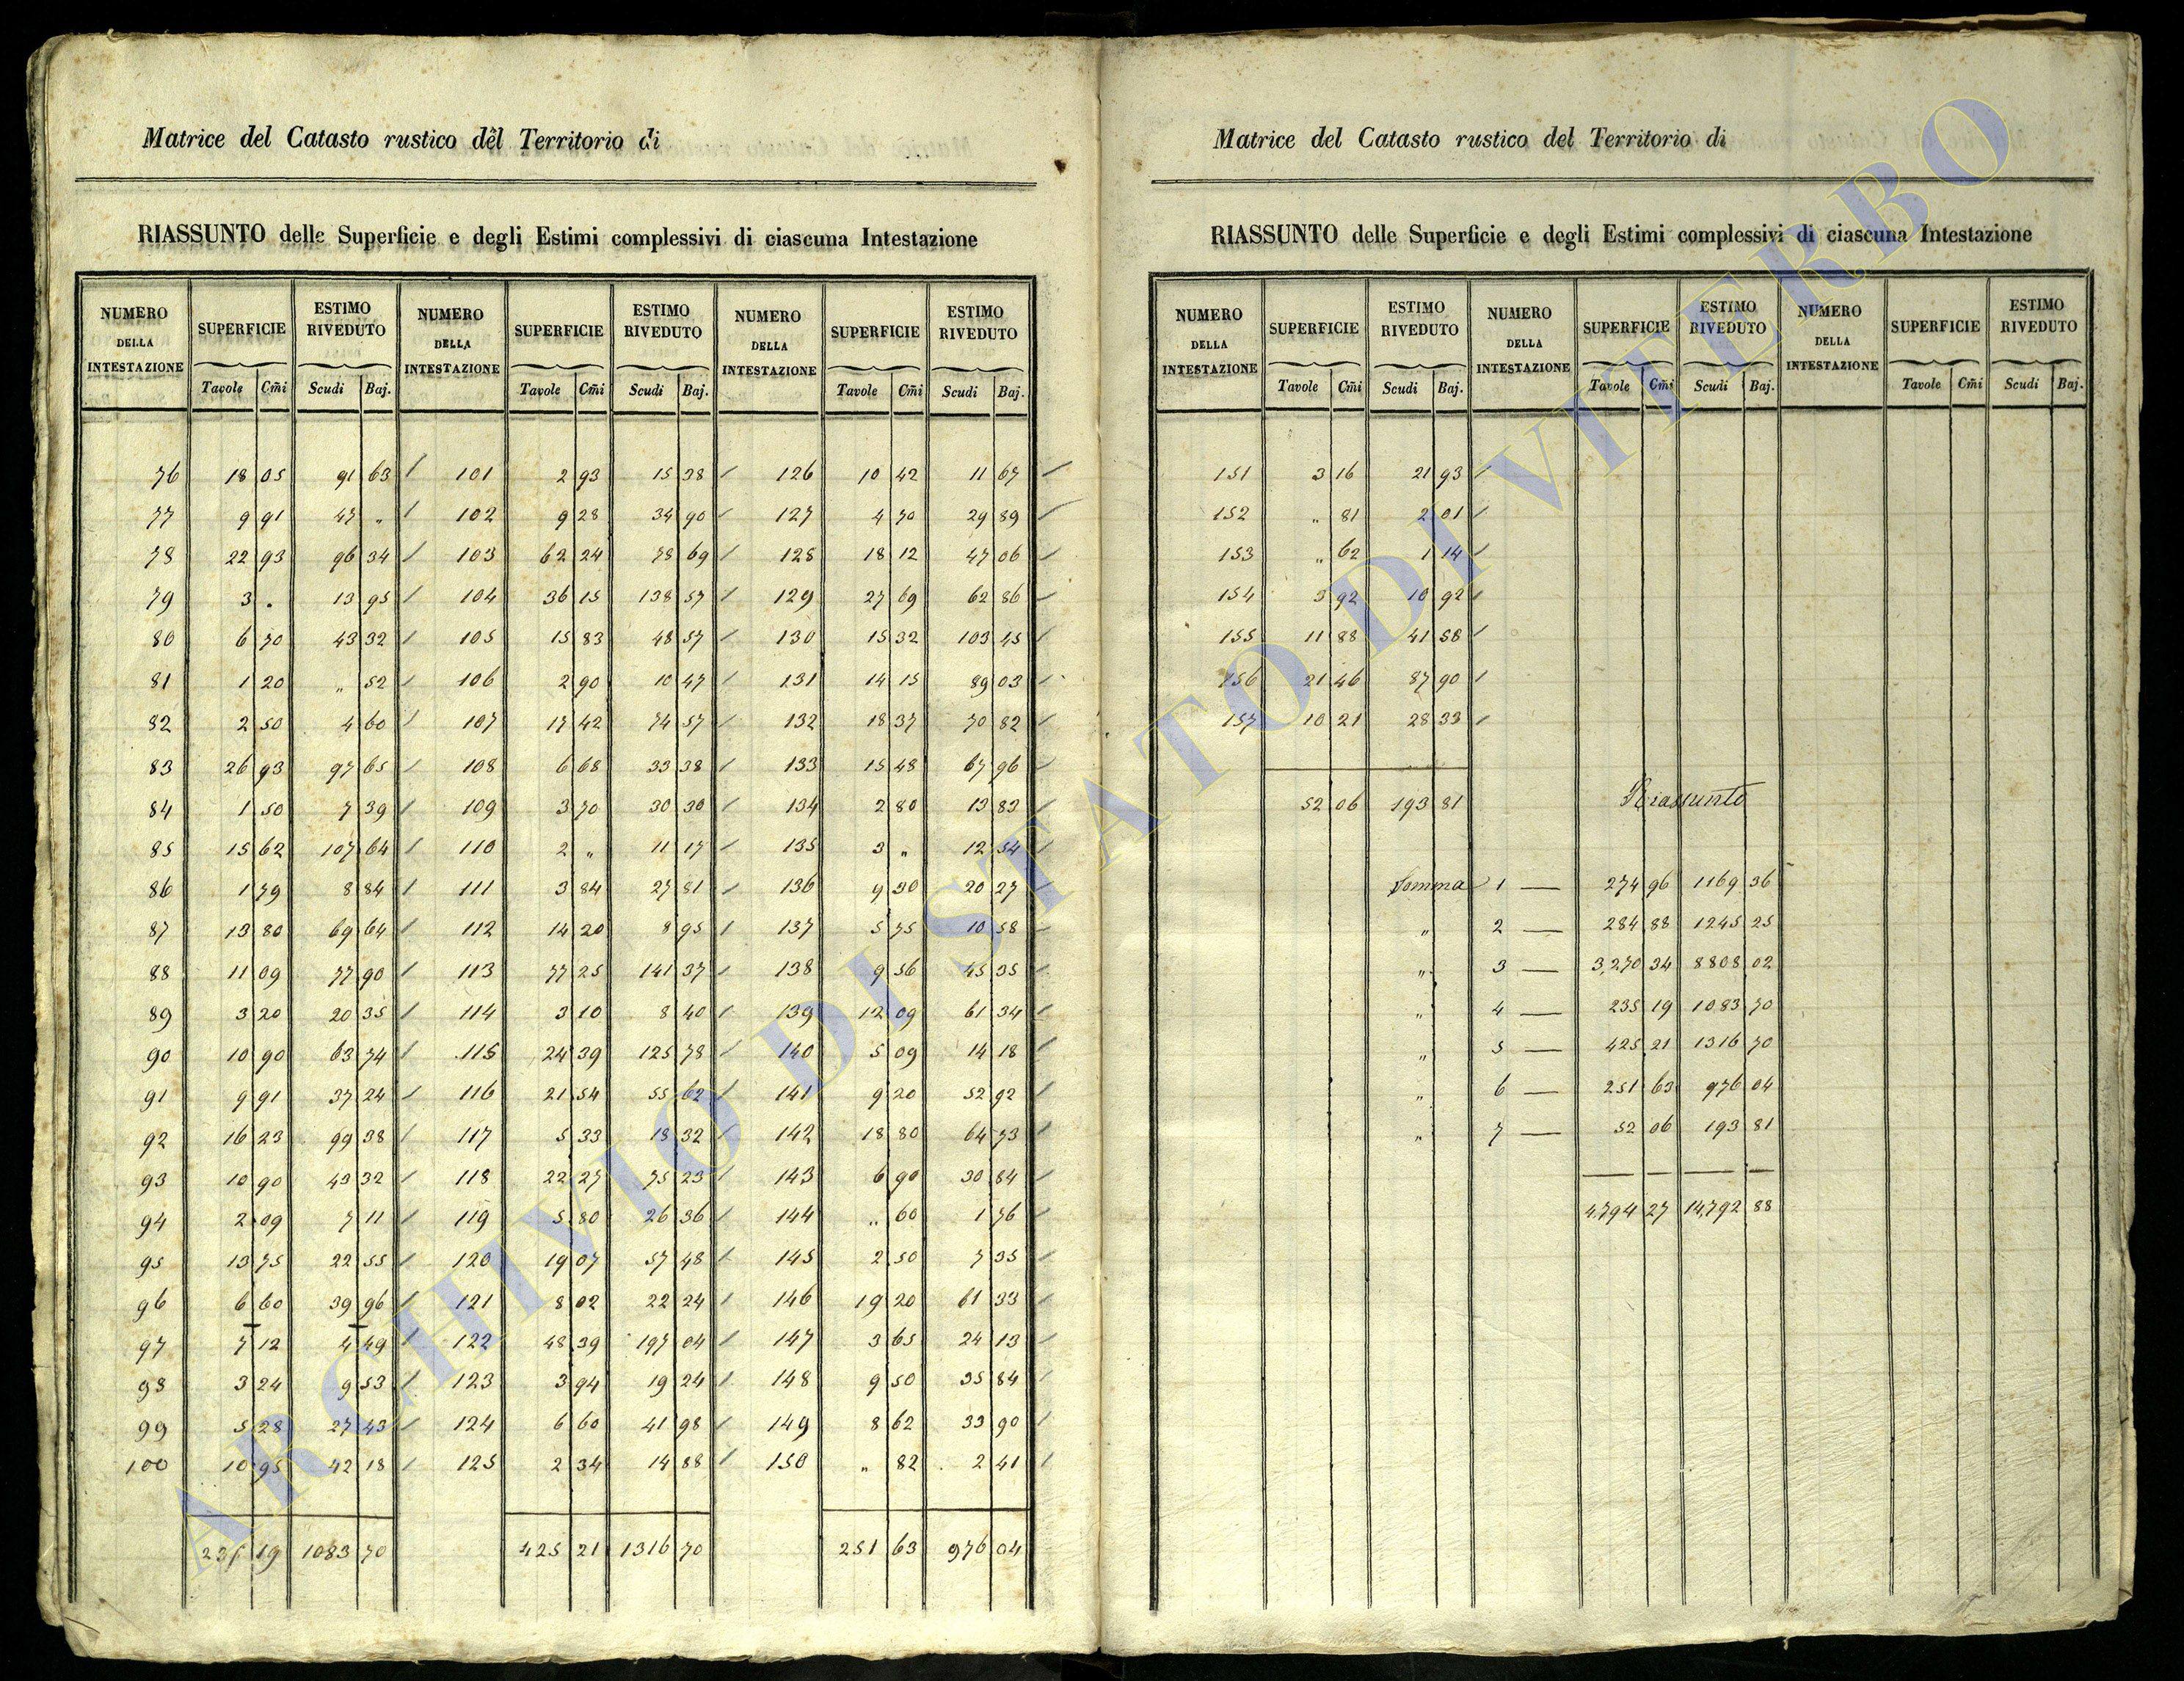 Matrice del Catasto rustico del Territorio di
RIASSUNTO delle Superficie e degli Estimi complessivi di ciascuna Intestazione
NUMERO DELLA INTESTAZIONE SUPERFICIE ESTIMO RIVEDUTO NUMERO DELLA INTESTAZIONE SUPERFICIE ESTIMO RIVEDUTO NUMERO DELLA INTESTAZIONE SUPERFICIE ESTIMO RIVEDUTO
Tavole Cm̃i Scudi Baj. Tavole Cm̃i Scudi Baj. Tavole Cm̃i Scudi Baj.
76 18 05 91 63 / 101 2 93 15 38 / 126 10 42 11 67 /
77 9 91 47 „ / 102 9 28 34 90 / 127 4 70 29 89 /
78 22 93 96 34 / 103 62 24 78 69 / 128 18 12 47 06 /
79 3 . 13 95 / 104 36 15 138 57 / 129 27 69 62 86 /
80 6 70 43 32 / 105 15 83 48 57 / 130 15 32 103 45 /
81 1 20 „ 52 / 106 2 90 10 47 / 131 14 15 89 03 /
82 2 50 4 60 / 107 17 42 74 57 / 132 18 37 70 82 /
83 26 93 97 65 / 108 6 68 33 38 / 133 15 48 67 96 /
84 1 50 7 39 / 109 3 70 30 30 / 134 2 80 13 83 /
85 15 62 107 64 / 110 2 „ 11 17 / 135 3 „ 12 54 /
86 1 79 8 84 / 111 3 84 27 81 / 136 9 30 20 27 /
87 13 80 69 64 / 112 14 20 8 95 / 137 5 75 10 58 /
88 11 09 77 90 / 113 77 25 141 37 / 138 9 56 45 35 /
89 3 20 20 35 / 114 3 10 8 40 / 139 12 09 61 34 /
90 10 90 63 74 / 115 24 39 125 78 / 140 5 09 14 18 /
91 9 91 37 24 / 116 21 54 55 62 / 141 9 20 52 92 /
92 16 23 99 38 / 117 5 33 18 32 / 142 18 80 64 73 /
93 10 90 43 32 / 118 22 27 75 23 / 143 6 90 30 84 /
94 2 09 7 11 / 119 5 80 26 36 / 144 „ 60 1 76 /
95 13 75 22 55 / 120 19 07 57 48 / 145 2 50 7 35 /
96 6 60 39 96 / 121 8 02 22 24 / 146 19 20 61 33 /
97 7 12 4 49 / 122 48 39 197 04 / 147 3 65 24 13 /
98 3 24 9 53 / 123 3 94 19 24 / 148 9 50 35 84 /
99 5 28 27 43 / 124 6 60 41 98 / 149 8 62 33 90 /
100 10 95 42 18 / 125 2 34 14 88 / 150 „ 82 2 41 /
235 19 1083 70 425 21 1316 70 251 63 976 04
Matrice del Catasto rustico del Territorio di
RIASSUNTO delle Superficie e degli Estimi complessivi di ciascuna Intestazione
NUMERO DELLA INTESTAZIONE SUPERFICIE ESTIMO RIVEDUTO NUMERO DELLA INTESTAZIONE SUPERFICIE ESTIMO RIVEDUTO NUMERO DELLA INTESTAZIONE SUPERFICIE ESTIMO RIVEDUTO
Tavole Cm̃i Scudi Baj. Tavole Cm̃i Scudi Baj. Tavole Cm̃i Scudi Baj.
151 3 16 21 93 /
152 „ 81 2 01 /
153 „ 62 1 14 /
154 3 92 10 92 /
155 11 88 41 58 /
156 21 46 87 90 /
157 10 21 28 33 /
52 06 193 81 Riassunto
Somma 1 — 274 96 1169 36
„ 2 — 284 88 1245 25
„ 3 — 3,270 34 8808 02
„ 4 — 235 19 1083 70
„ 5 — 425 21 1316 70
„ 6 — 251 63 976 04
„ 7 — 52 06 193 81
4,794 27 14,792 88
ARCHIVIO DI STATO DI VITERBO